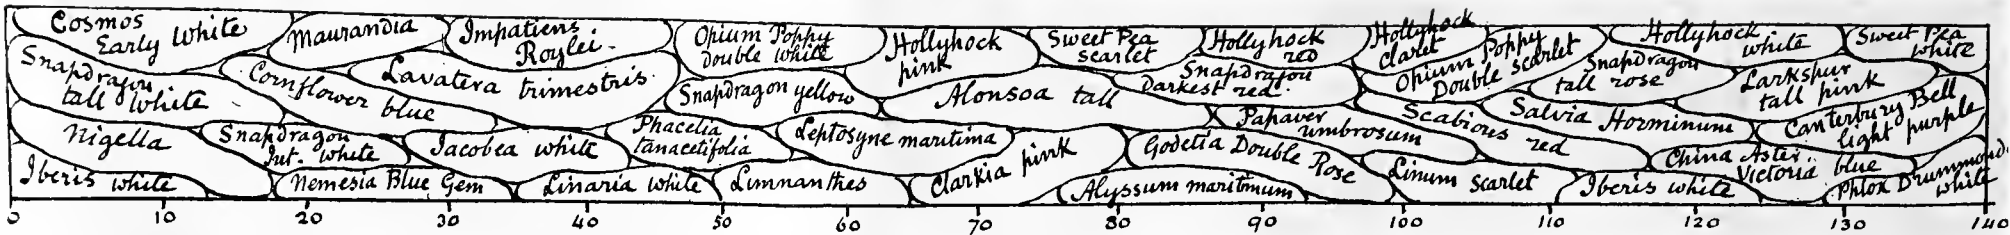 Cosmos
Early White
Maurandia
Impatiens
Roylei.
Opium Poppy
Double White
Hollyhock
pink
Sweet Pea
scarlet
Hollyhock
red
Hollyhock
claret
Opium Poppy
Double scarlet
Hollyhock
white
Sweet Pea
white
Snapdragon
tall white
Cornflower
blue
Lavatera trimestris.
Snapdragon yellow
Alonsoa tall
Snapdragon
Darkest red.
Snapdragon
tall rose
Larkspur
tall pink
Nigella
Snapdragon
Int. white
Jacobea white
Phacelia
tanacetifolia
Leptosyne maritima
Clarkia pink
Godetia Double Rose
Papaver
umbrosum
Scabious
red
Salvia Horminum
Canterbury Bell
light purple
Iberis white
Nemesia Blue Gem
Linaria white
Limnanthes
Alyssum maritimum
Linum scarlet
Iberis white
China Aster.
Victoria blue
Phlox Drummond.
white
0 10 20 30 40 50 60 70 80 90 100 110 120 130 140